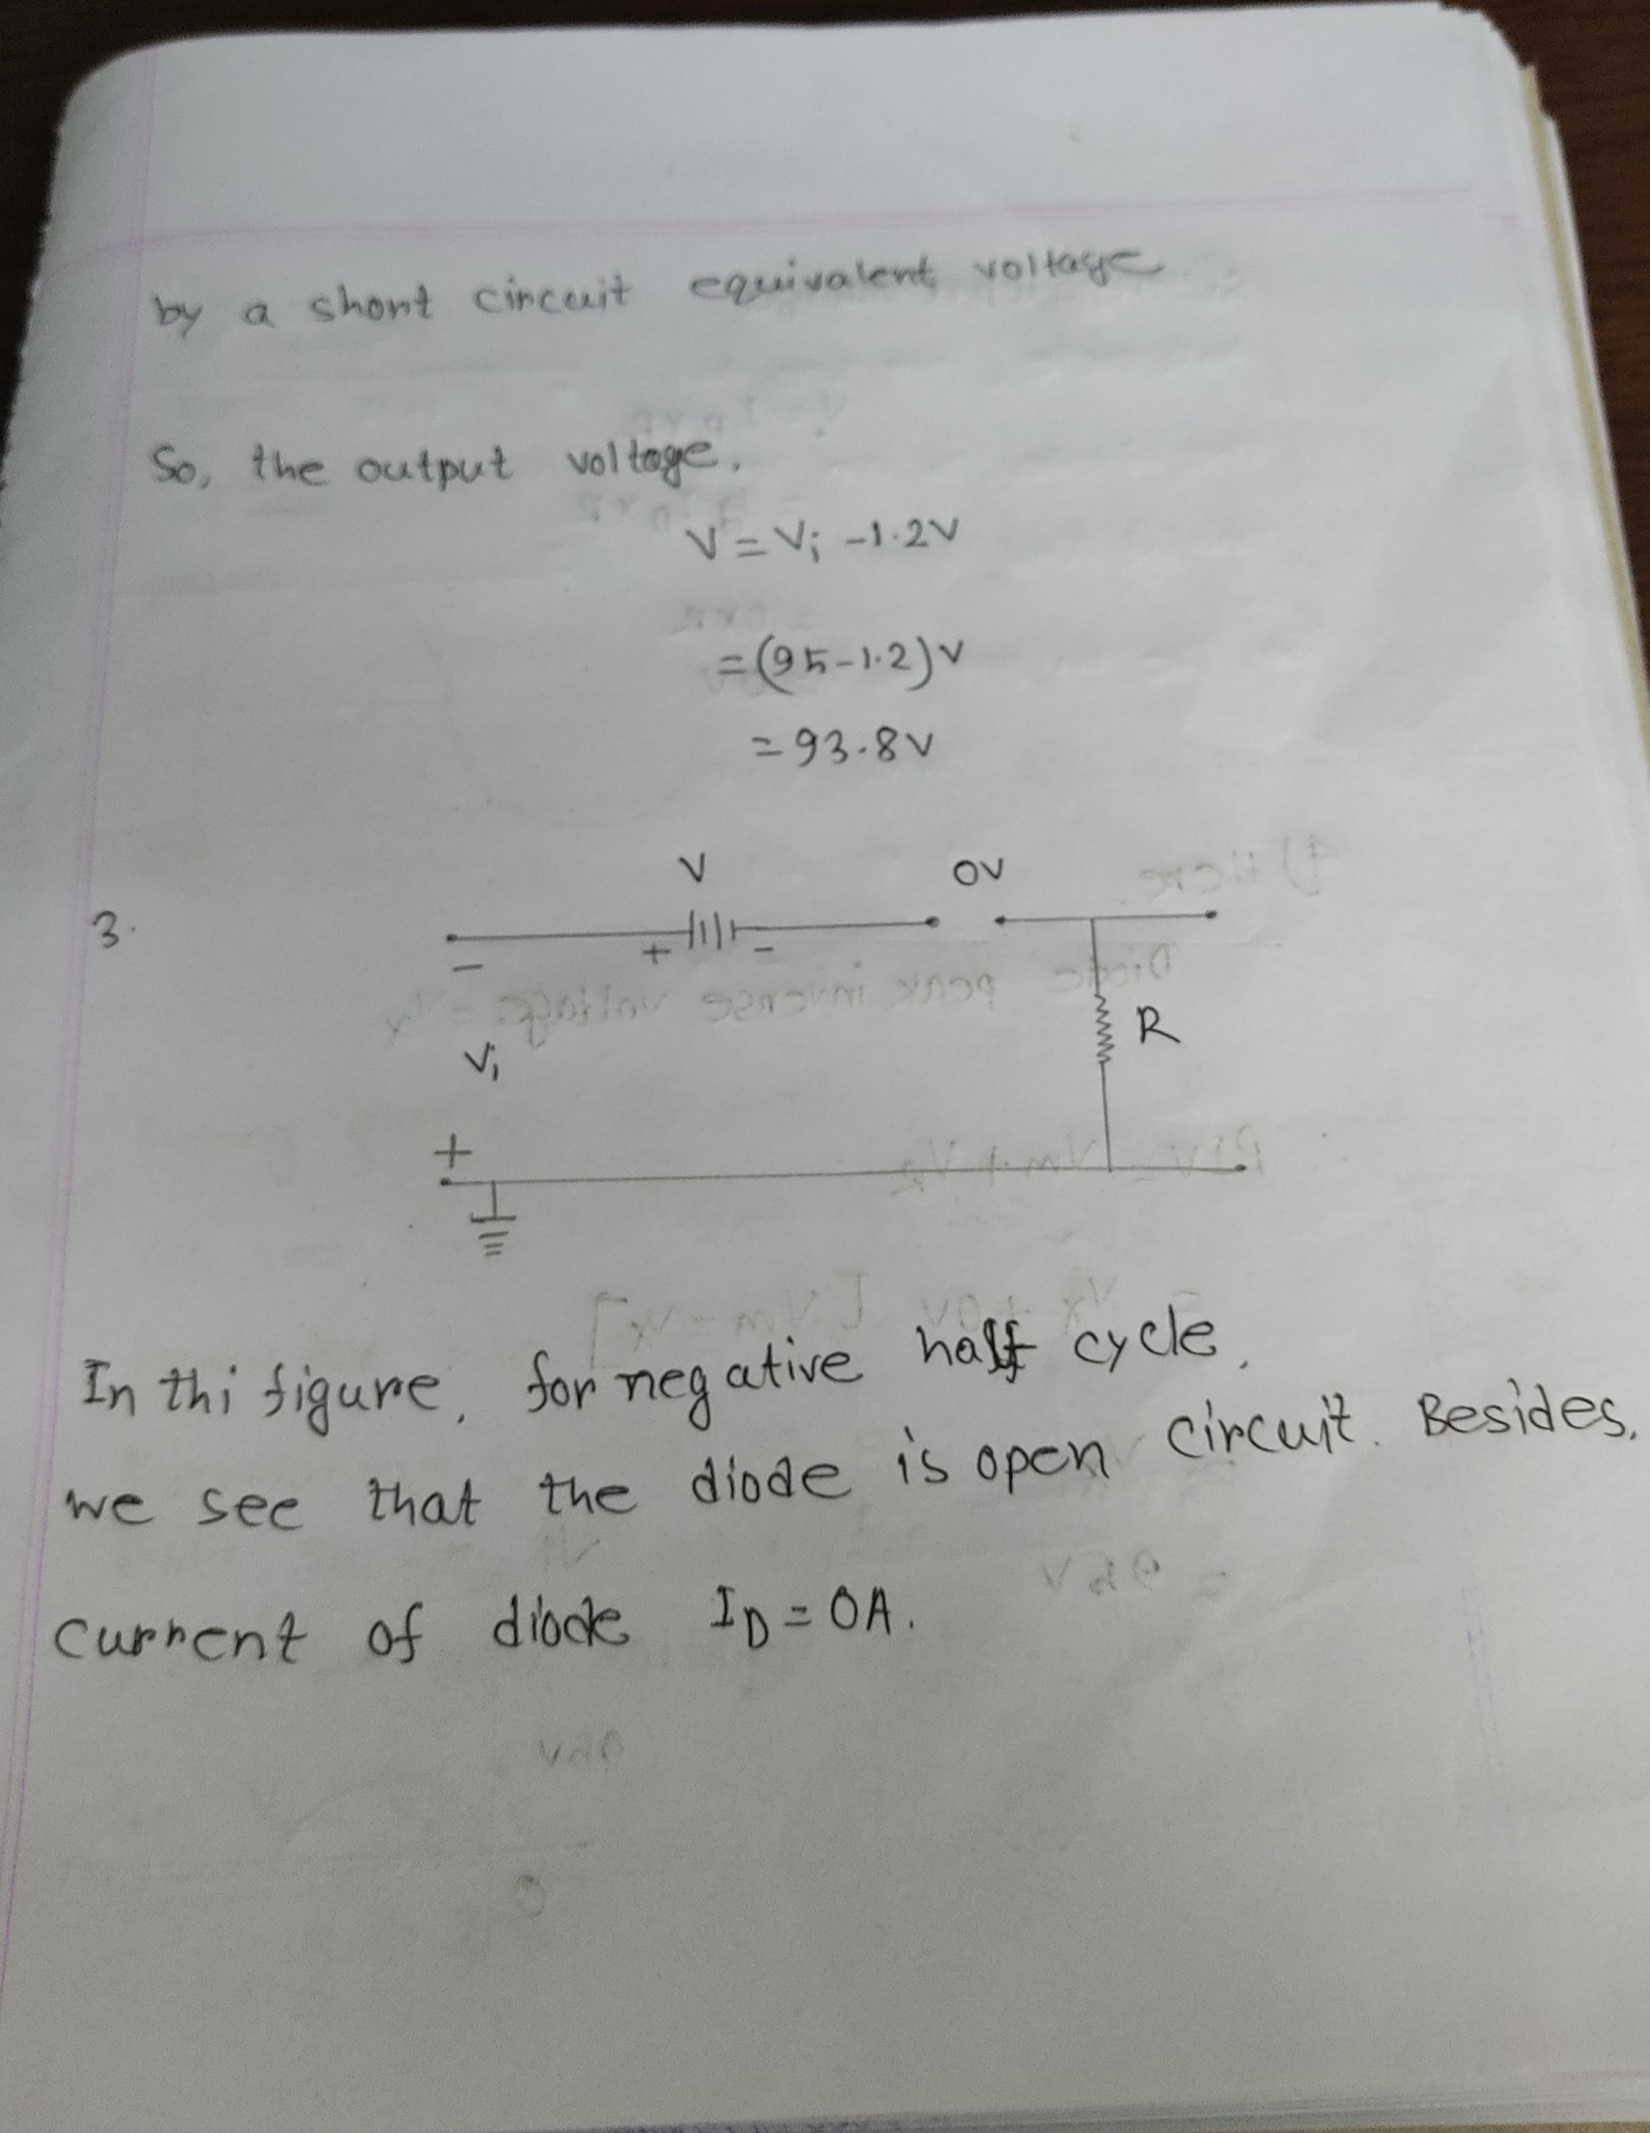 by a short circuit equivalent voltage
So, the output voltage,
V = Vi - 1.2V
= (95 - 1.2) V
= 93.8 V
3.
V
0V
+ -
-
R
Vi
+
In thi figure, for negative half cycle,
we see that the diode is open circuit. Besides,
current of diode ID = 0A.